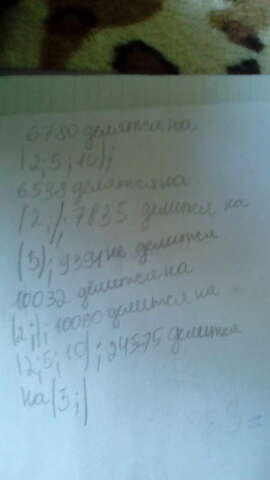 6780 делятся на
(2;5;10);
6538 делятся на
(2;); 7835 делится на
(5); 9391 не делится
10032 делится на
(2;); 10060 делится на
(2;5;10); 24575 делится
на (5;)